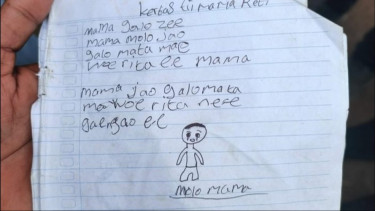 kertas li mama Reti
mama galo zee
mama molo jao
galo mata mae
woe rita le mama
mama jao galo mata
ma woe rita nene
gaengao el
molo mama